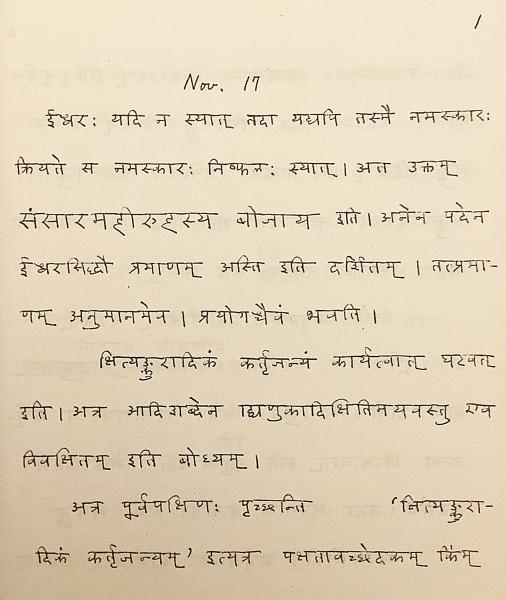 1
Nov. 17
ईश्वरः यदि न स्यात् तदा यद्यपि तस्मै नमस्कारः
क्रियते स नमस्कारः निष्फलः स्यात् । अत उक्तम्
संसारमहीरुहस्य बीजाय इति । अनेन पदेन
ईश्वरसिद्धौ प्रमाणम् अस्ति इति दर्शितम् । तत्प्रमा-
णम् अनुमानमेव । प्रयोगश्चैवं भवति ।
क्षित्यङ्कुरादिकं कर्तृजन्यं कार्यत्वात् घटवत्
इति । अत्र आदिशब्देन द्व्यणुकादिक्षितिमयवस्तु एव
विवक्षितम् इति बोध्यम् ।
अत्र पूर्वपक्षिणः पृच्छन्ति 'क्षित्यङ्कुरा-
दिकं कर्तृजन्यम्' इत्यत्र पक्षतावच्छेदकम् किम्